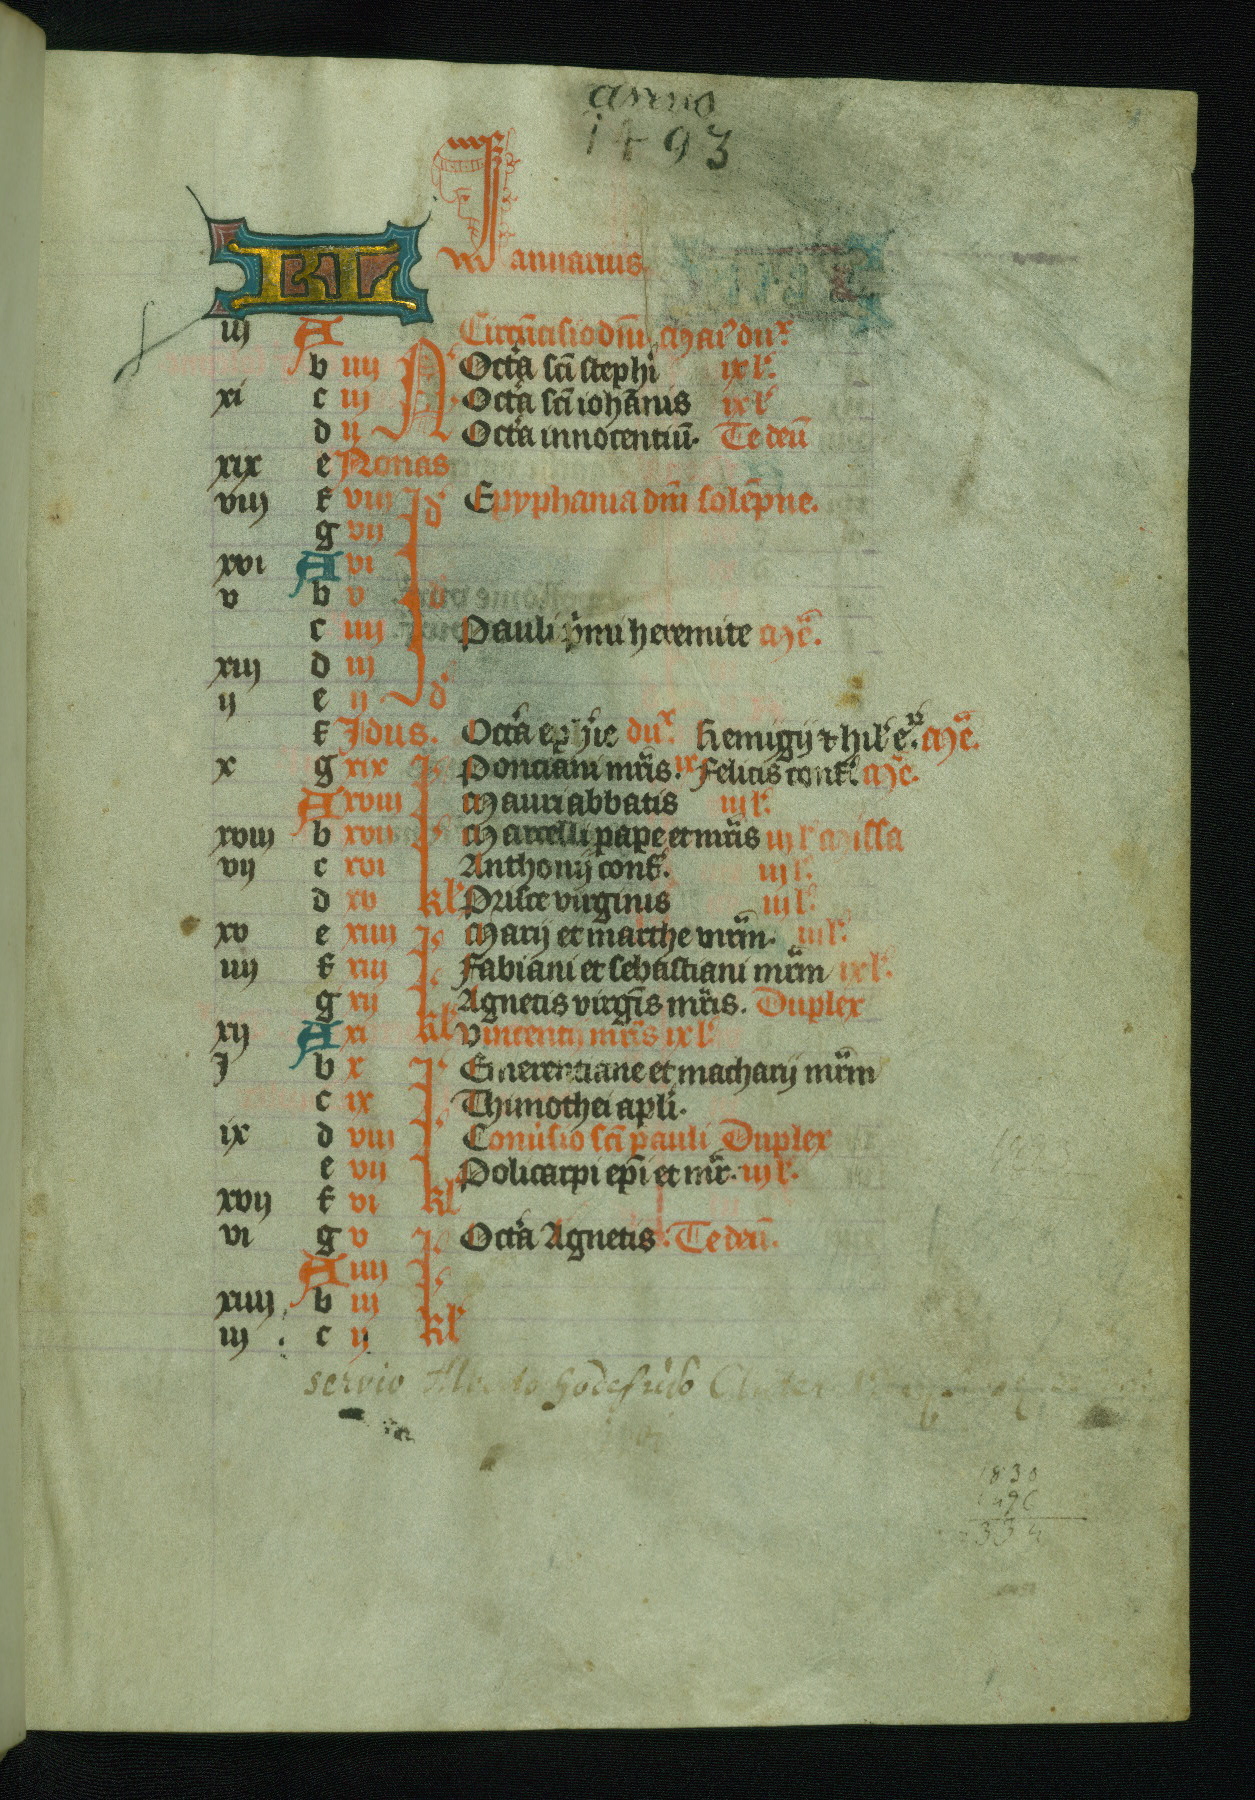 anno
1493
KL Ianuarius
iij A Circūcisio dn̄i Maiꝰ duˣ
b iiij Octa sc̄i stephi ix lˢ
xi c iij Octa sc̄i iohānis ix lˢ
d ij Octa innocentiū. Te deū
xix e Nonas
viij f viij Id Epyphania dn̄i solēpne.
g vij
xvi A vi
v b v
c iiij Pauli pͥmi heremite Mē.
xiij d iij
ij e ij d
f Idus. Octa ephie duˣ Remigij & hilˢ Mē.
x g xix Ponciani mr̄is. ix Felicis conf. Mē.
A xviij Mauri abbatis iij lˢ
xviij b xvij Marcelli pape et mr̄is iij lˢ Missa
vij c xvi Anthonij conf. iij lˢ
d xv kl Prisce virginis iij lˢ
xv e xiiij Marij et marthe mr̄m. iij lˢ
iiij f xiij Fabiani et sebastiani mr̄m ix lˢ
g xij Agnetis virgīs mr̄is. Duplex
xij A xi kl Vincentij mr̄is ix lˢ
I b x Emerentiane et macharij mr̄m
c ix Thimothei apli.
ix d viij Conūsio sc̄i pauli Duplex
e vij Policarpi ep̄i et mr̄. iij lˢ
xvij f vi kl
vi g v Octa Agnetis. Te deū.
A iiij
xiiij b iij
iij c ij kl
servio
1830
1496
334